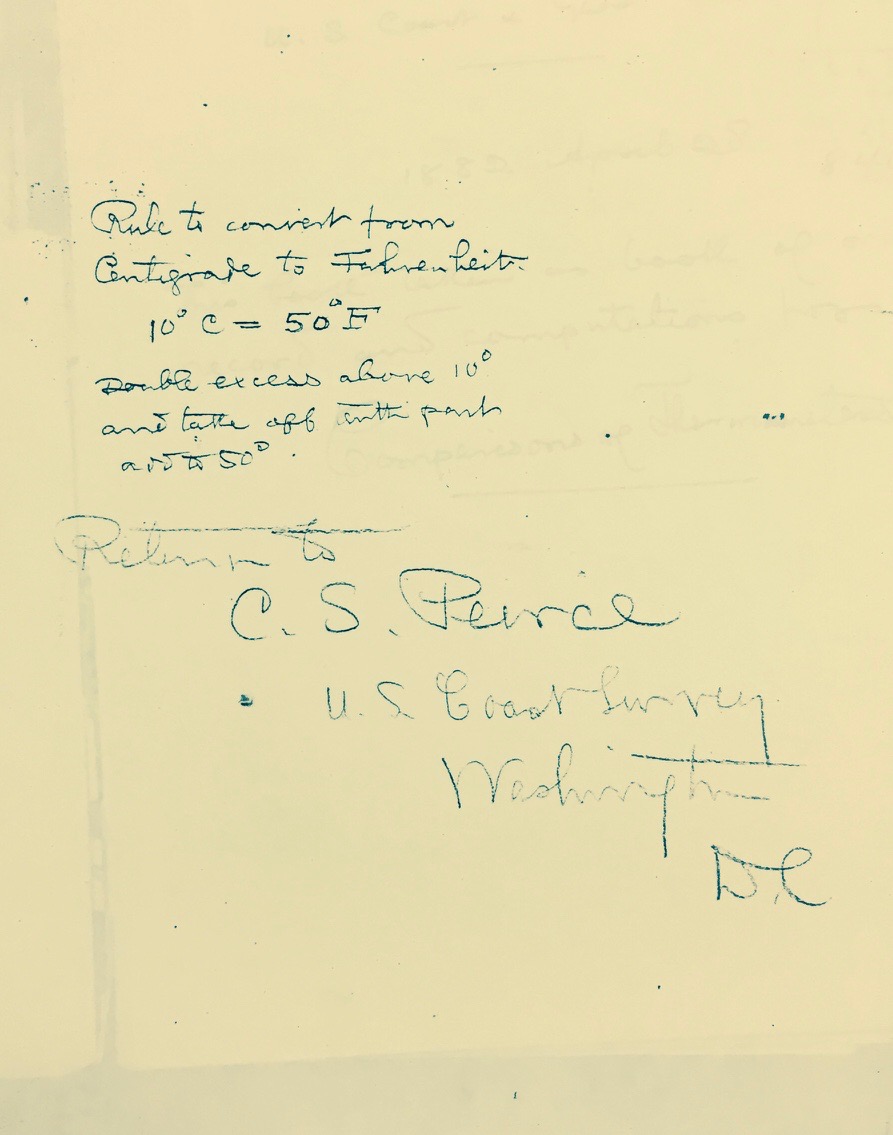 Rule to convert from
Centigrade to Fahrenheit.
10° C = 50° F
Double excess above 10°
and take off tenth part
add to 50°.
Return to
C. S. Peirce
U. S. Coast Survey
Washington
D.C